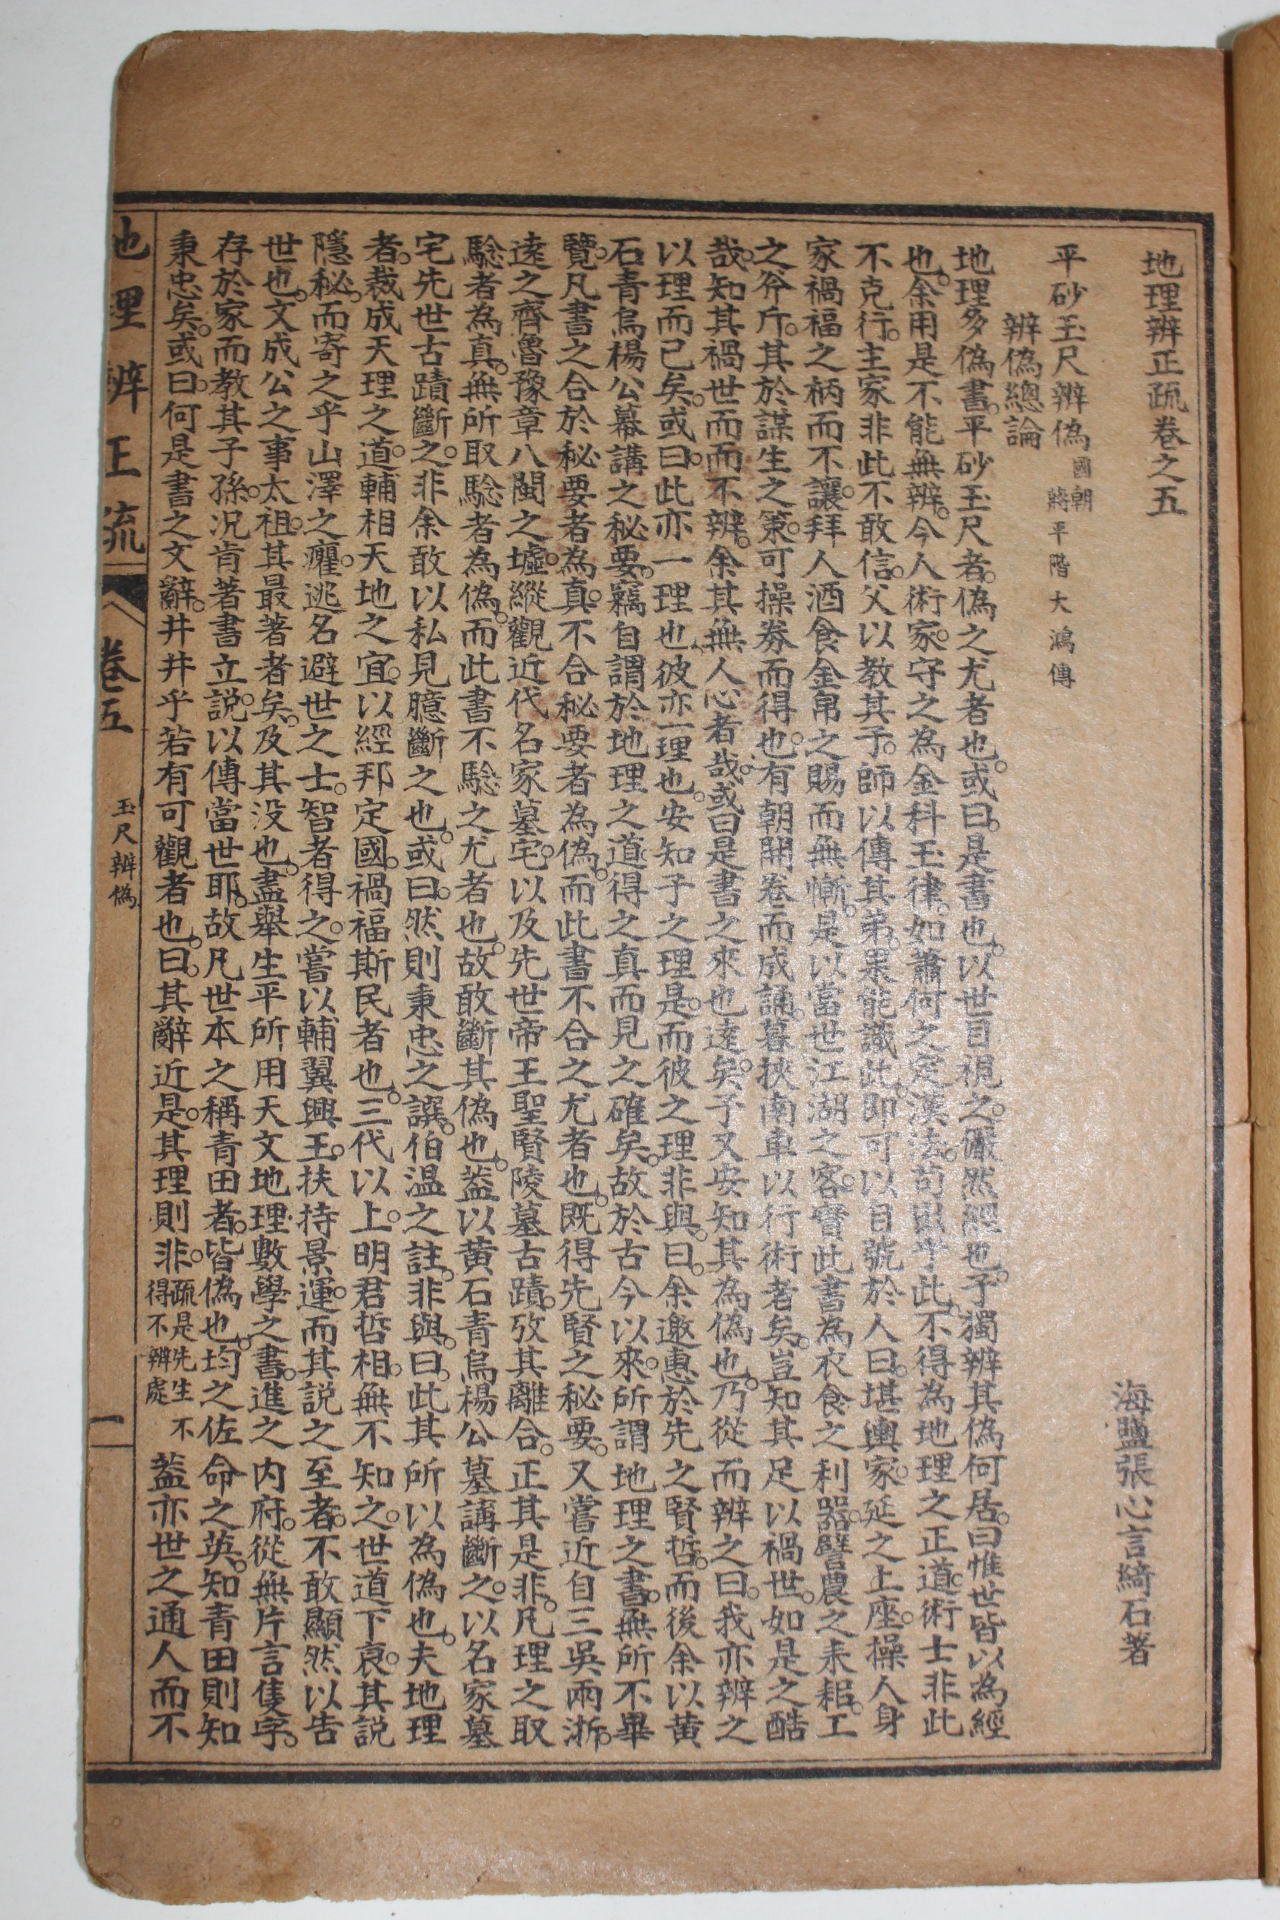 地理辨正疏卷之五
海鹽張心言綺石著
平砂玉尺辨偽國朝蔣平階大鴻傳
辨偽總論
地理多偽書平砂玉尺者偽之尤者也或曰是書也以世目視之儼然經也子獨辨其偽何居曰惟世皆以為經
也余用是不能無辨今人術家守之為金科玉律如蕭何之定漢法苟出乎此不得為地理之正道術士非此
不克行主家非此不敢信父以教其子師以傳其弟果能識此即可以自號於人曰堪輿家延之上座操人身
家禍福之柄而不讓拜人酒食金帛之賜而無慚是以當世江湖之客寶此書為衣食之利器譬農之耒耜工
之斧斤其於謀生之策可操券而得也有朝開卷而成誦暮挾南車以行術者矣豈知其足以禍世如是之酷
哉知其禍世而而不辨余其無人心者哉或曰是書之來也遠矣子又安知其為偽也乃從而辨之曰我亦辨之
以理而已矣或曰此亦一理也彼亦一理也安知子之理是而彼之理非與曰余邀惠於先之賢哲而後余以黃
石青烏楊公幕講之秘要竊自謂於地理之道得之真而見之確矣故於古今以來所謂地理之書無所不畢
覽凡書之合於秘要者為真不合秘要者為偽而此書不合之尤者也既得先賢之秘要又嘗近自三吳兩浙
遠之齊魯豫章八閩之墟縱觀近代名家墓宅以及先世帝王聖賢陵墓古蹟攷其離合正其是非凡理之取
驗者為真無所取驗者為偽而此書不驗之尤者也故敢斷其偽也蓋以黃石青烏楊公墓講斷之以名家墓
宅先世古蹟斷之非余敢以私見臆斷之也或曰然則秉忠之譔伯温之註非與曰此其所以為偽也夫地理
者裁成天理之道輔相天地之宜以經邦定國禍福斯民者也三代以上明君哲相無不知之世道下衰其説
隱秘而寄之乎山澤之癯逃名避世之士智者得之嘗以輔翼興王扶持景運而其説之至者不敢顯然以告
世也文成公之事太祖其最著者矣及其没也盡舉生平所用天文地理數學之書進之內府從無片言隻字
存於家而教其子孫況肯著書立説以傳當世耶故凡世本之稱青田者皆偽也均之佐命之英知青田則知
秉忠矣或曰何是書之文辭井井乎若有可觀者也曰其辭近是其理則非疏是先生不得不辨處蓋亦世之通人而不
地理辨正疏
卷五
玉尺辨偽
一